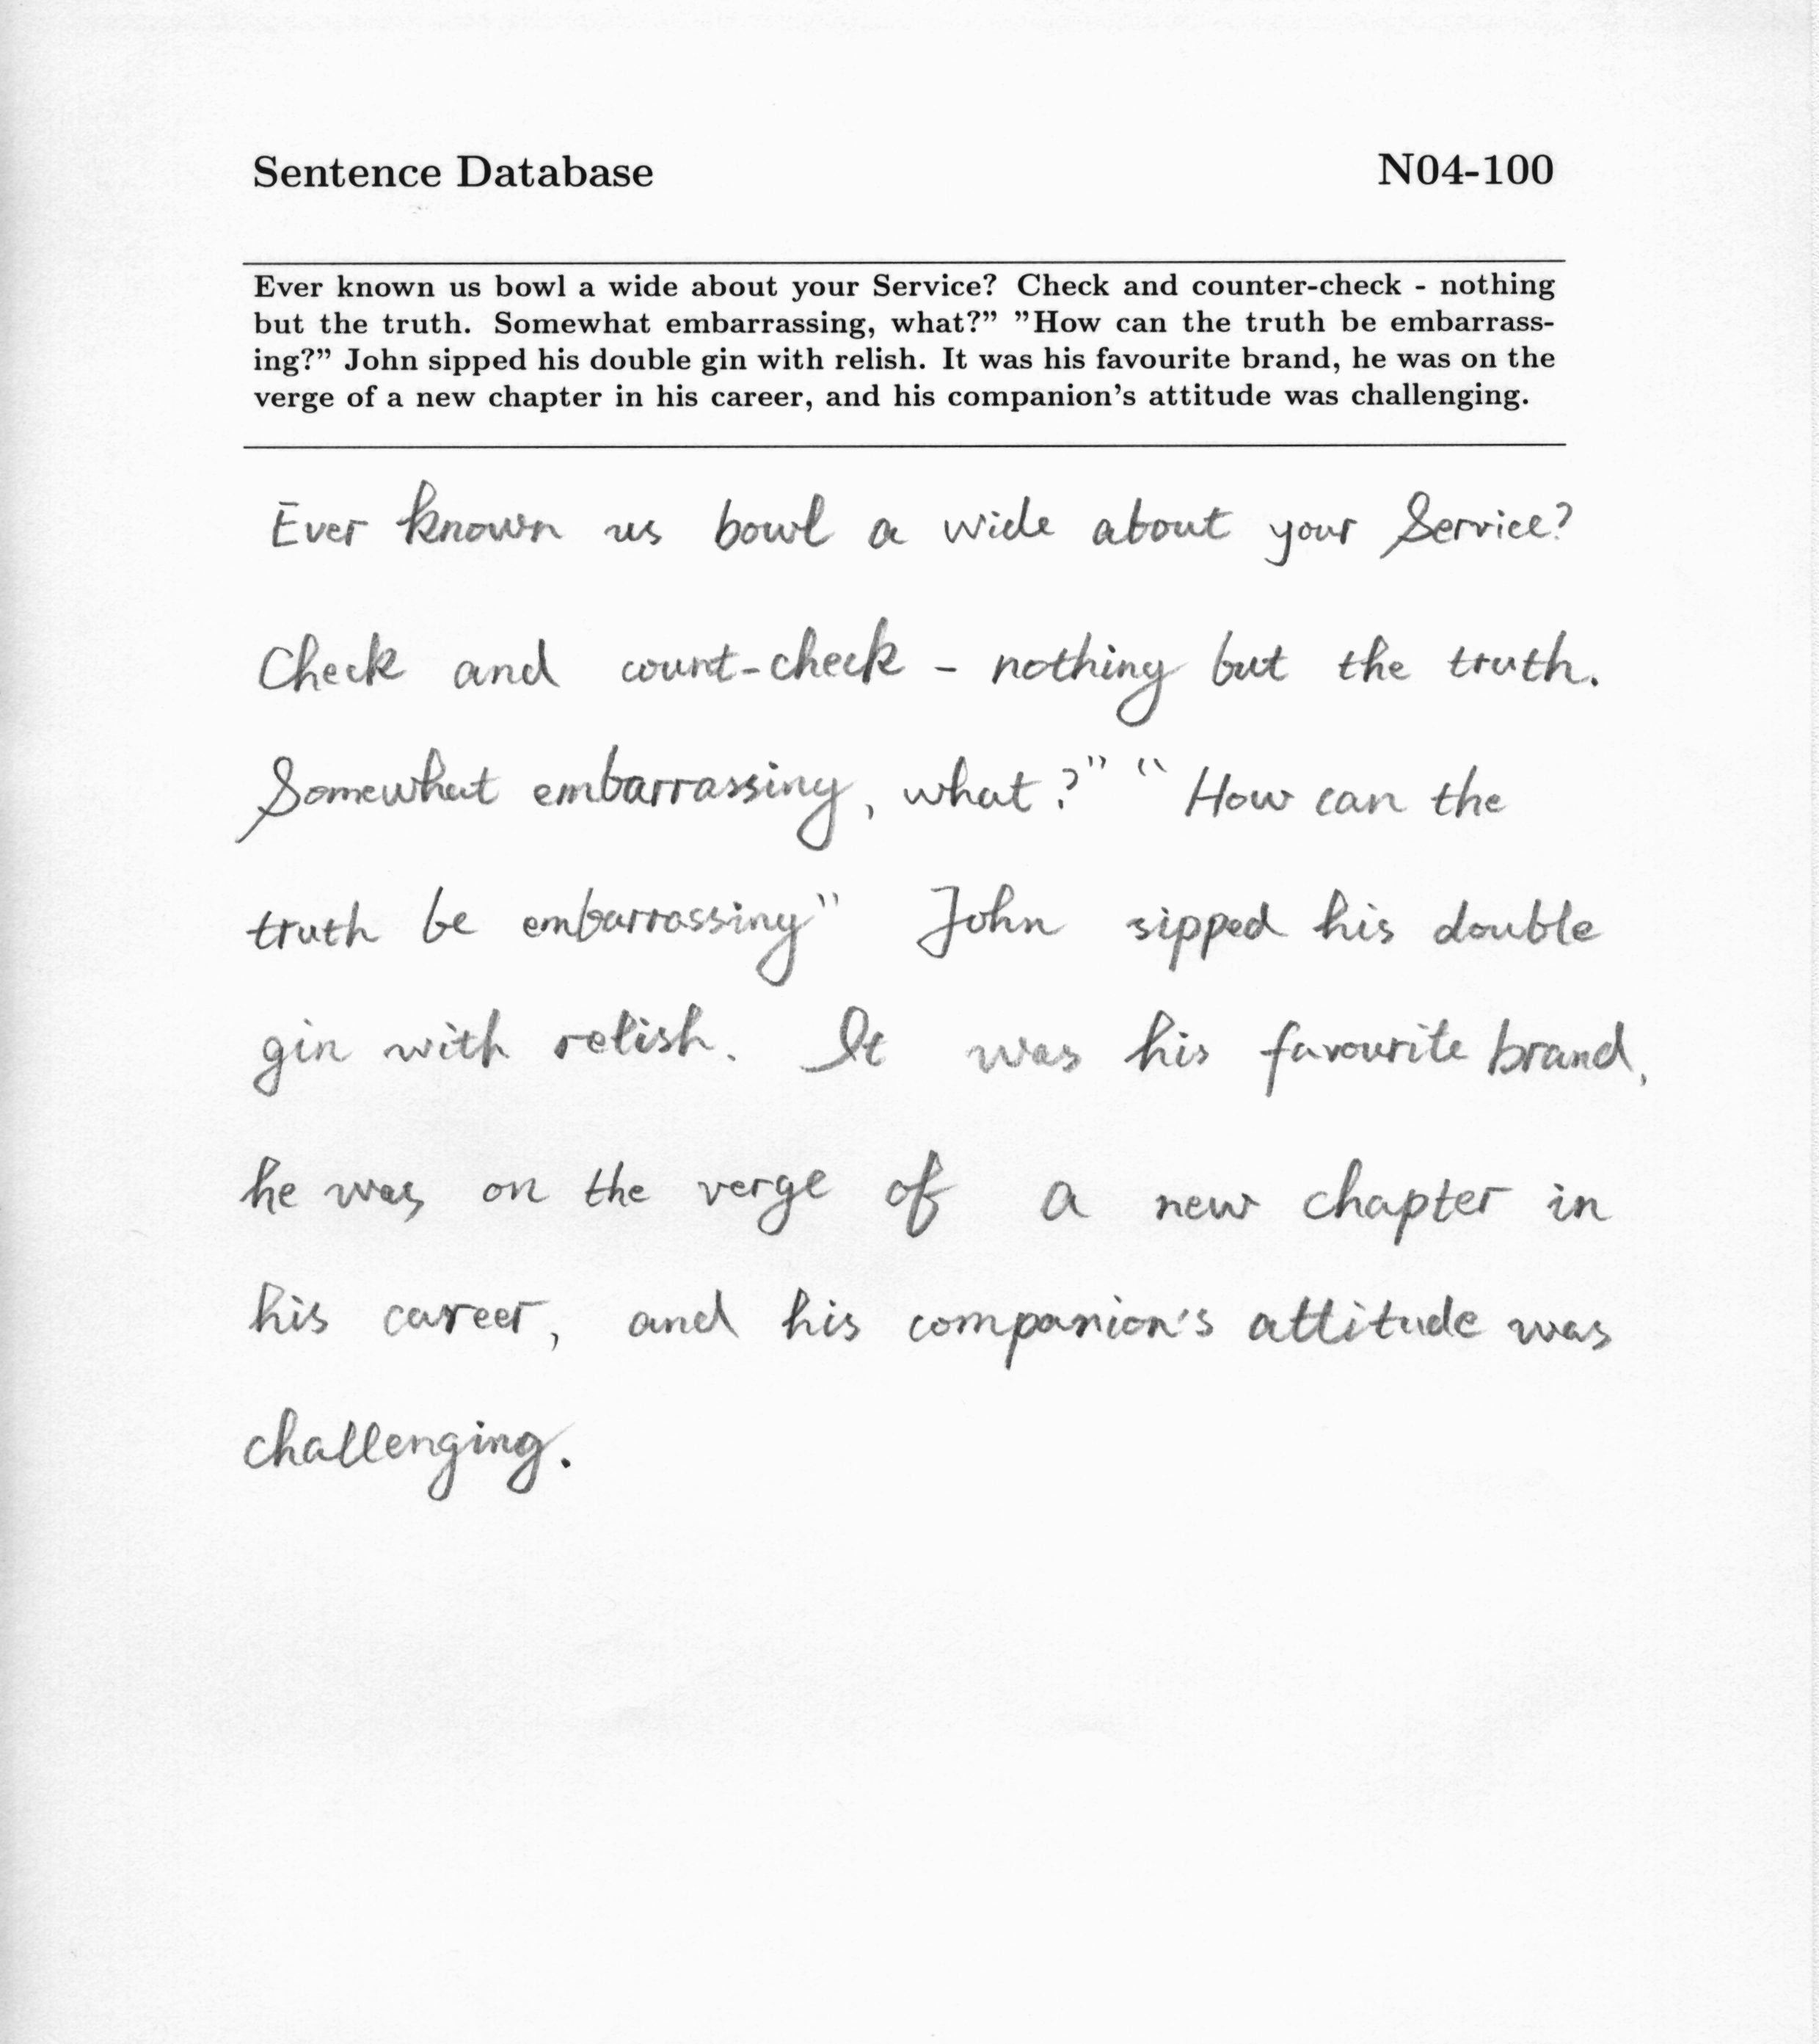 Sentence Database N04-100
Ever known us bowl a wide about your Service? Check and counter-check - nothing
but the truth. Somewhat embarrassing, what?” ”How can the truth be embarrass-
ing?” John sipped his double gin with relish. It was his favourite brand, he was on the
verge of a new chapter in his career, and his companion’s attitude was challenging.
Ever known us bowl a wide about your Service?
Check and count-check - nothing but the truth.
Somewhat embarrassing, what?" "How can the
truth be embarrassing" John sipped his double
gin with relish. It was his favourite brand,
he was on the verge of a new chapter in
his career, and his companion's attitude was
challenging.